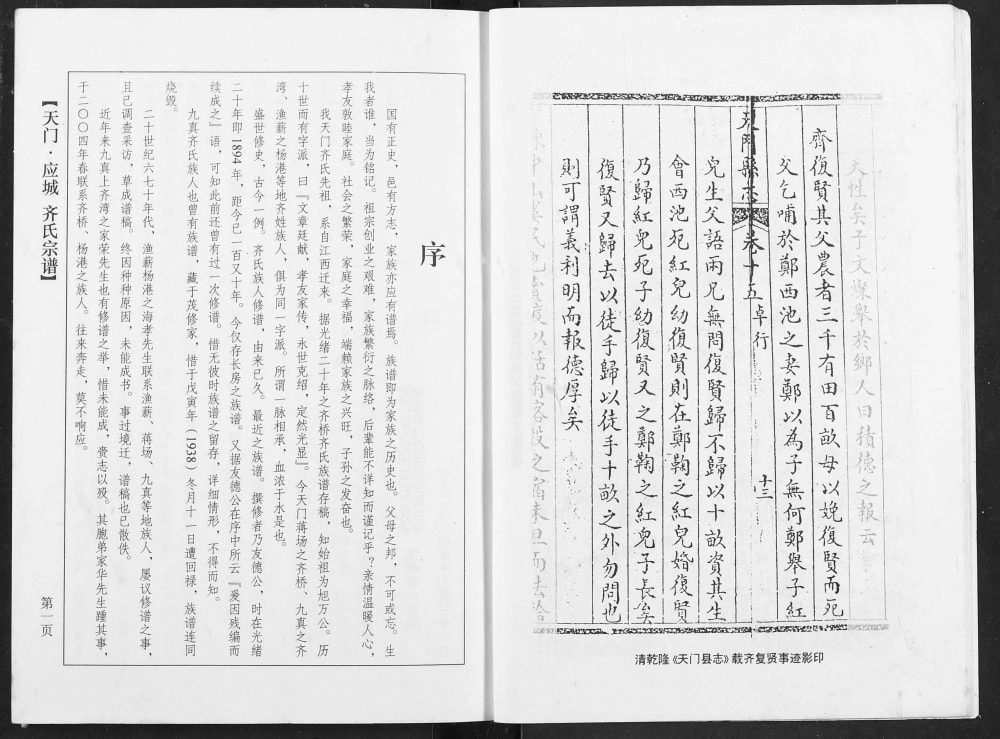 齊復賢其父農者三千有田百畝母以娩復賢而死
父乞哺於鄭西池之妻鄭以為子無何鄭舉子紅
天門縣志 卷十五 卓行 十三
兒生父語兩兄無問復賢歸不歸以十畝資其生
會西池死紅兒幼復賢則在鄭鞠之紅兒婚復賢
乃歸紅兒死子幼復賢又之鄭鞠之紅兒子長矣
復賢又歸去以徒手歸以徒手十畝之外勿問也
則可謂義利明而報德厚矣
清乾隆《天门县志》载齐复贤事迹影印
序
国有正史，邑有方志，家族亦应有谱焉。族谱即为家族之历史也。父母之邦，不可或忘。生
我者谁，当为铭记。祖宗创业之艰难，家族繁衍之脉络，后辈能不详知而谨记乎？亲情温暖人心，
孝友敦睦家庭。社会之繁荣，家庭之幸福，端赖家族之兴旺，子孙之发奋也。
我天门齐氏先祖，系自江西迁来。据光绪二十年之齐桥齐氏族谱存稿，知始祖为旭万公。历
十世而有字派，曰『文章廷献，孝友家传，永世克绍，定然光显』。今天门蒋场之齐桥、九真之齐
湾、渔薪之杨港等地齐姓族人，俱为同一字派。所谓一脉相承，血浓于水是也。
盛世修史，古今一例。齐氏族人修谱，由来已久。最近之族谱。撰修者乃友德公，时在光绪
二十年即1894年，距今已一百又十年。今仅存长房之族谱。又据友德公在序中所云『爰因残编而
续成之』语，可知此前还曾有过一次修谱。惜无彼时族谱之留存，详细情形，不得而知。
九真齐氏族人也曾有族谱，藏于茂修家，惜于戊寅年（1938）冬月十一日遭回禄，族谱连同
烧毁。
二十世纪六七十年代，渔薪杨港之海孝先生联系渔薪、蒋场、九真等地族人，屡议修谱之事，
且已调查采访，草成谱稿。终因种种原因，未能成书。事过境迁，谱稿也已散佚。
近年来九真上齐湾之家荣先生也有修谱之举，惜未能成，赍志以殁。其胞弟家华先生踵其事，
于二〇〇四年春联系齐桥、杨港之族人。往来奔走，莫不响应。
【天门·应城 齐氏宗谱】
第一页